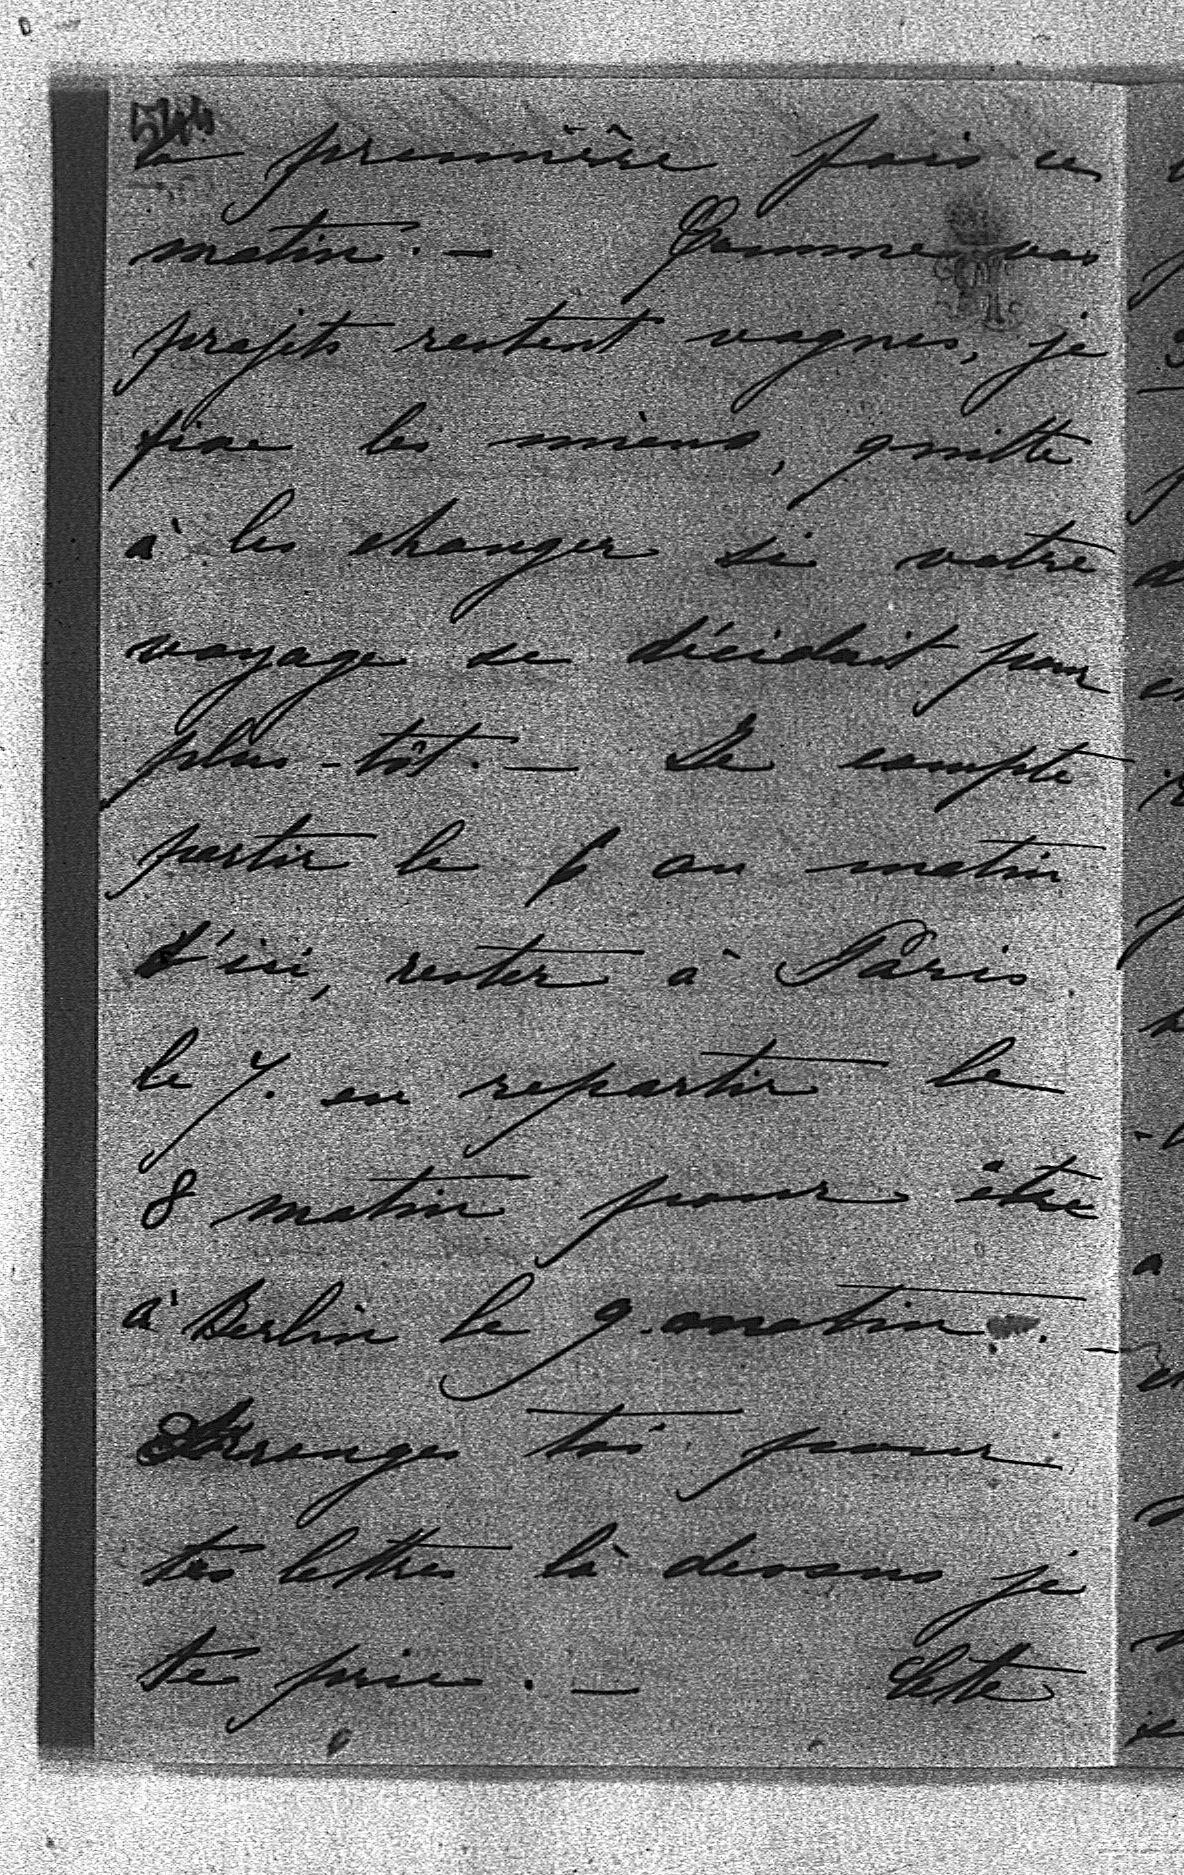 544
la première fois ce
matin. — Comme vos
projets restent vagues, je
fixe les miens, quitte
à les changer si votre
voyage se décidait pour
plus-tôt. — Je compte
partir le 6 au matin
d'ici, rester à Paris
le 7. en repartir le
8 matin pour être
à Berlin le 9. matin.
Arranges toi pour
tes lettres là dessus je
te prie. — Cette